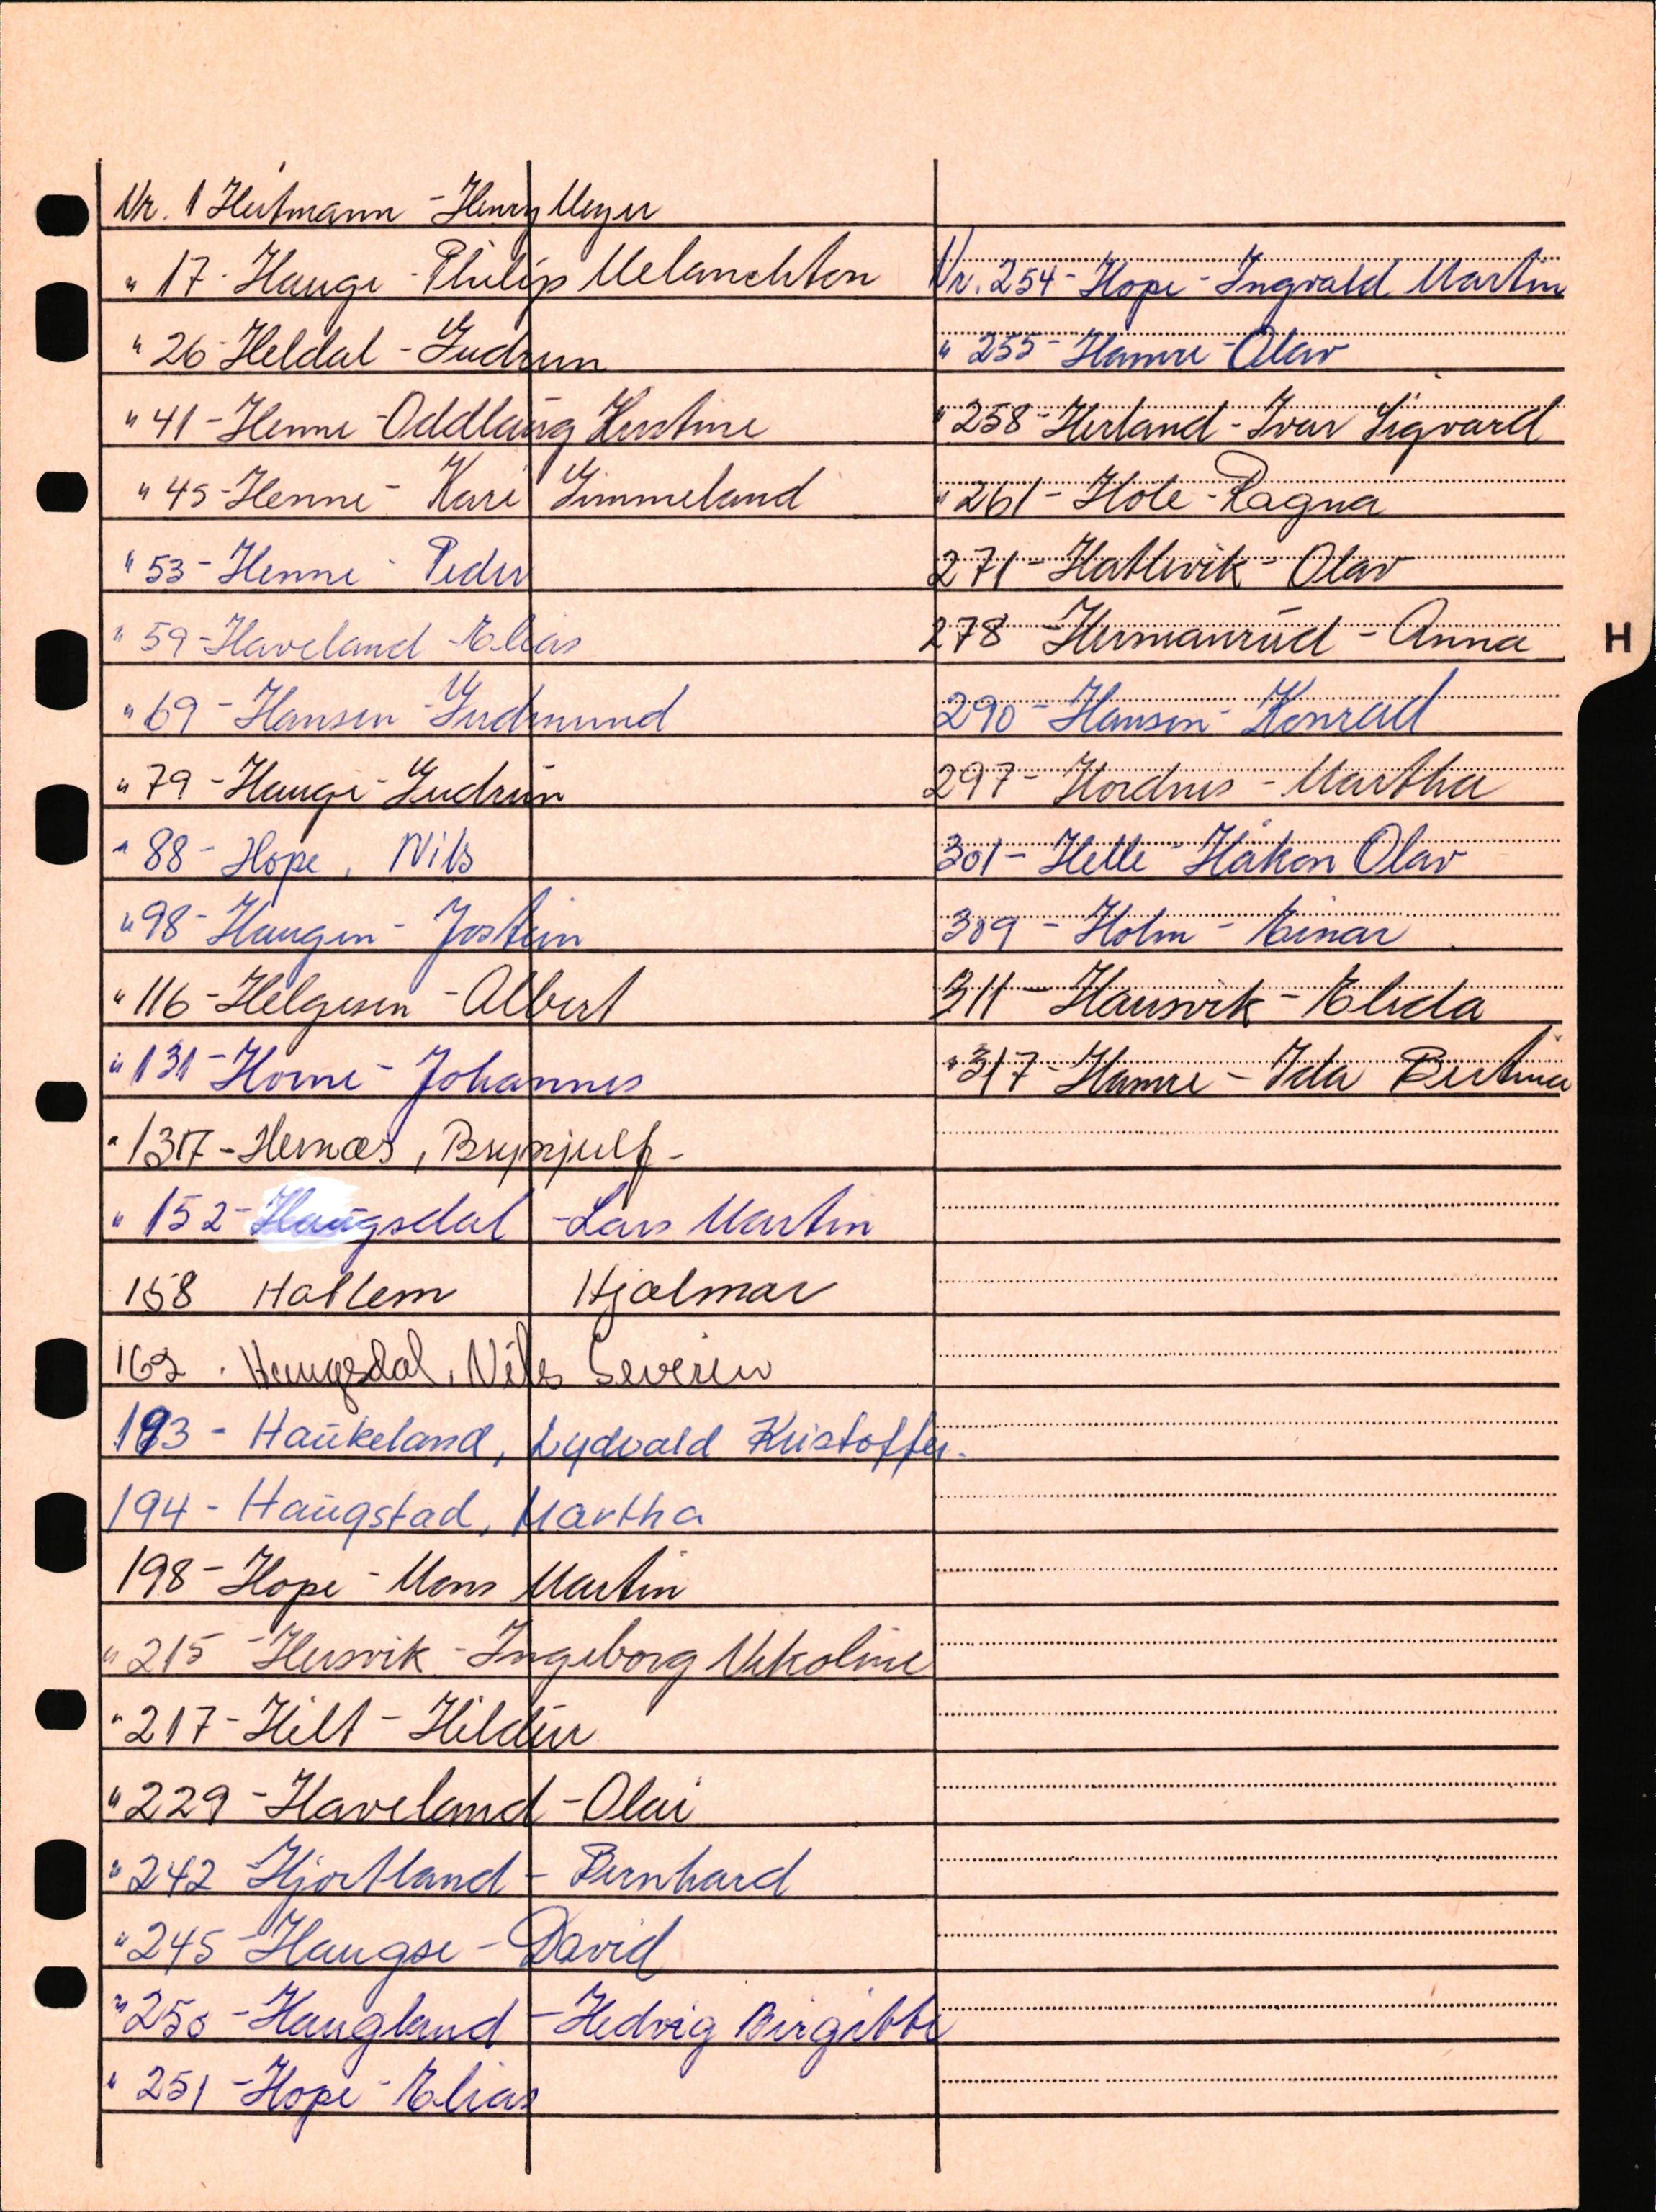 Nr. 1 Heitmann - Henry Meyer
" 17 - Hauge - Philip Melanchton
" 26 - Heldal - Gudrun
" 41 - Henne - Oddlaug Kristine
" 45 - Henne - Kari Gimmeland
" 53 - Henne - Peder
" 59 - Haveland - Elias
" 69 - Hansen - Gudmund
" 79 - Hauge - Gudrun
" 88 - Hope, Nils
" 98 - Haugen - Jostein
" 116 - Helgesen - Albert
" 131 - Horne - Johannes
" 137 - Hernæs, Brynjulf -
" 152 - Haugsdal - Lars Martin
158 Hatlem Hjalmar
162 . Haugsdal, Nils Severin
193 - Haukeland, Lydvald Kristoffer.
194 - Haugstad, Martha
198 - Hope - Mons Martin
" 215 - Husvik - Ingeborg Nikoline
" 217 - Hilt - Hildur
" 229 - Haveland - Olai
" 242 Hjortland - Bernhard
" 245 - Haugse - David
" 250 - Haugland - Hedvig Birgitte
" 251 - Hope - Elias
Nr. 254 - Hope - Ingvald Martin
" 255 - Hamre - Olav
" 258 - Herland - Ivar Sigvard
" 261 - Hole - Ragna
271 - Hatlevik - Olav
278 - Hermanrud - Anna
290 - Hansen - Konrad
297 - Hordnes - Martha
301 - Helle - Håkon Olav
309 - Holm - Einar
311 - Hausvik - Elida
" 317 - Hamre - Ida Bertina
H